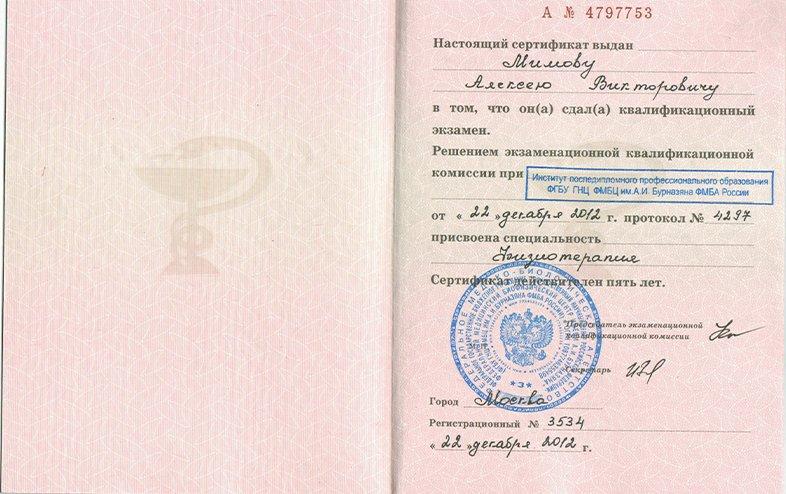 А № 4797753
Настоящий сертификат выдан
Мимову
Алексею Викторовичу
в том, что он(а) сдал(а) квалификационный
экзамен.
Решением экзаменационной квалификационной
комиссии при
Институт последипломного профессионального образования
ФГБУ ГНЦ ФМБЦ им.А.И. Бурназяна ФМБА России
от « 22 » декабря 2012 г. протокол № 4297
присвоена специальность
Физиотерапия
Сертификат действителен пять лет.
Председатель экзаменационной
квалификационной комиссии
Секретарь
*3*
Город Москва
Регистрационный № 3534
« 22 » декабря 2012 г.